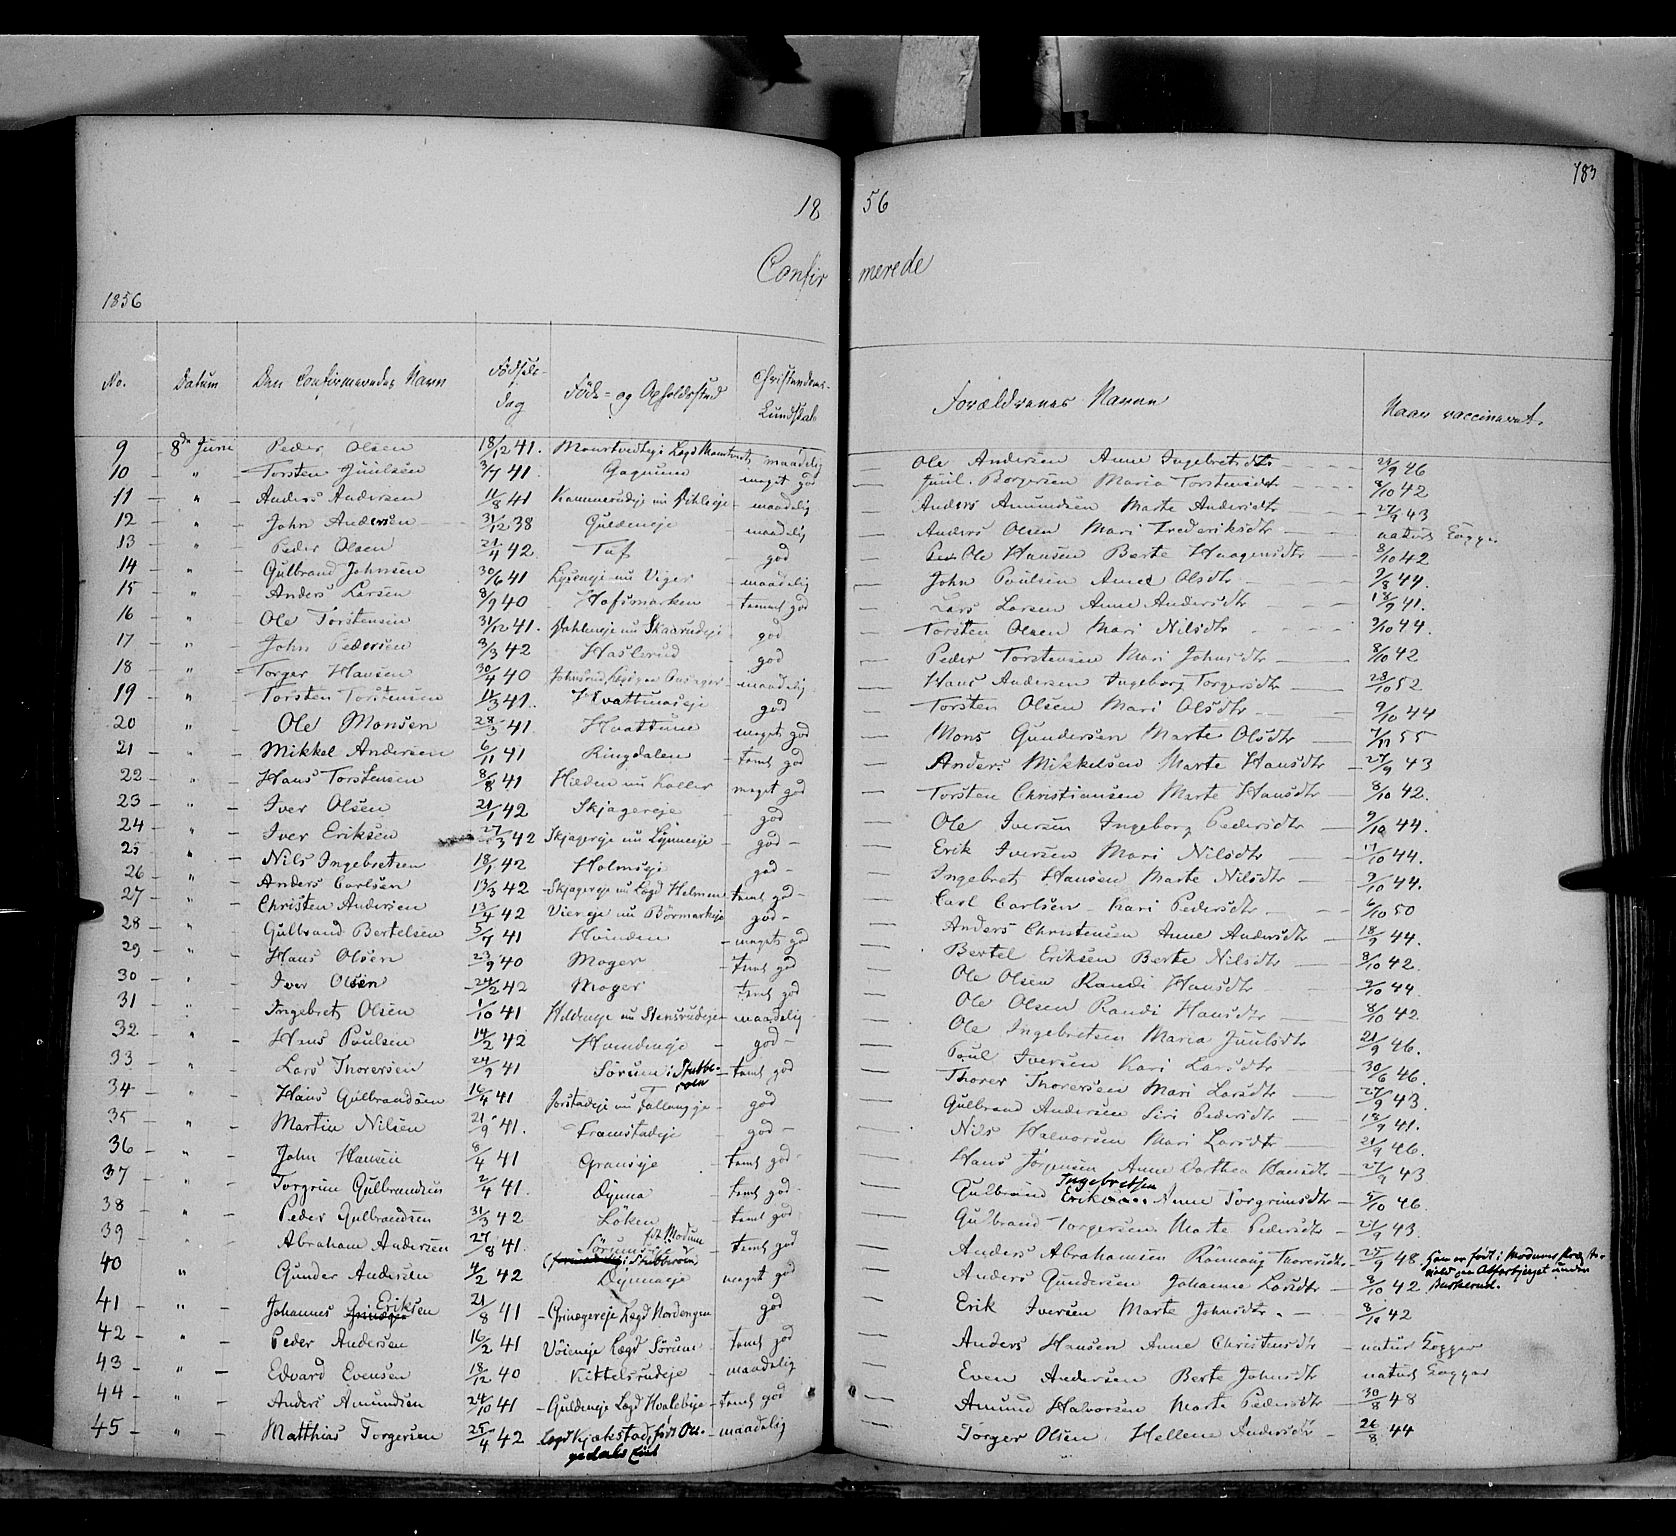 183
18 56
Confir merede
1856
No. Datum Den Confirmeredes Navn Fødsels-dag Føde- og Opholdssted Christendoms-Kundskab Forældrenes Navne Naar vaccineret.
9 8de Juni Peder Olsen 18/12 41. maadelig Ole Andersen Anne Ingebretsdtr 46
10 " Torsten Juulsen 3/7 41. Gagnum meget god Juul Borgersen Maria Torstensdtr 8/10 42
11 " Anders Andersen 11/8 41 maadelig Anders Amundsen Marte Andersdtr 27/9 43
12 " John Andersen 31/12 38 Guldeneje maadelig Anders Olsen Mari Frederiksdtr naturl Kopper
13 " Peder Olsen 21/4 42 Tuf god Ole Hansen Berte Haagensdtr 8/10 42
14 " Gulbrand Johnsen 30/6 41 nu Viger maadelig John Poulsen Anne Olsdtr 9/8 44.
15 " Anders Larsen 8/9 40 Hofsmarken temmel god Lars Larsen Anne Andersdtr 18/9 41.
16 " Ole Torstensen 31/12 41. nu Skaarudeje god Torsten Olsen Mari Nilsdtr 9/10 44.
17 " John Pedersen 3/3 42 Haslerud god Peder Torstensen Mari Johnsdtr 8/10 42
18 " Torger Hansen 30/4 40 maadelig Hans Andersen Ingeborg Torgersdtr 23/10 52
19 " Torsten Torstensen 11/3 41. Hvattumseje god Torsten Olsen Mari Olsdtr 9/10 44
20 " Ole Monsen 28/3 41 Hvattum meget god Mons Gundersen Marte Olsdtr 7/11 55
21 " Mikkel Andersen 6/11 41 Ringdalen temt god Anders Mikkelsen Marte Hansdtr 27/9 43
22 " Hans Torstensen 8/8 41 Hilden nu Koller meget god Torsten Christiansen Marte Hansdtr 8/10 42.
23 " Iver Olsen 21/1 42 Skjagereje god Ole Iversen Ingeborg Pedersdtr 9/10 44.
24 " Iver Eriksen 27/3 42 Skjagereje nu Lynneeje god Erik Iversen Mari Nilsdtr 11/10 44.
25 " Nils Ingebretsen 18/1 42 Holmseje god Ingebret Hansen Marte Nilsdtr 9/10 44.
26 " Anders Carlsen 13/3 42 Skjagereje nu Lægd Helmen temt god Carl Carlsen Kari Pedersdtr 6/10 50
27 " Christen Andersen 13/4 42 Viereje nu Börmarkeje god Anders Christensen Anne Andersdtr 18/9 44.
28 " Gulbrand Bertelsen 5/7 41 Hvinden meget god Bertel Eriksen Berte Nilsdtr 8/10 42.
29 " Hans Olsen 23/9 40 Moger temt god Ole Olsen Randi Hansdtr 9/10 44.
30 " Iver Olsen 24/2 42 Moger temt god Ole Olsen Randi Hansdtr 8/10 42
31 " Ingebret Olsen 1/10 41 Hildeneje nu Stensrudeje maadelig Ole Ingebretsen Maria Juulsdtr 21/9 46.
32 " Hans Poulsen 14/2 42 Hvindeneje god Poul Iversen Kari Larsdtr 30/6 46.
33 " Lars Thorersen 24/9 41 Sörum i Stubberoen temt god Thorer Thorersen Mari Larsdtr 27/9 43.
34 " Hans Gulbrandsen 16/4 41 nu Fallangeje god Gulbrand Andersen Siri Pedersdtr 18/9 41.
35 " Martin Nilsen 21/9 41. Framstadeje god Nils Halvorsen Mari Larsdtr 21/9 46.
36 " John Hansen 8/4 41 Granseje temt god Hans Jörgensen Anne Dorthea Hansdtr 27/9 43
37 " Torgrim Gulbrandsen 2/4 41. Dynna temt god Gulbrand Eriksen Ingebretsen Anne Torgrimsdtr 9/10 46.
38 " Peder Gulbrandsen 31/3 42 Löken temt god Gulbrand Torgersen Marte Pedersdtr 27/9 43.
39 " Abraham Andersen 27/8 41. Sörumseje fdt Modum i Stubberoen temt god Anders Abrahamsen Rönnaug Thoresdtr 25/9 48 Han er født i Modums Præstegjeld
40 " Gunder Andersen 4/2 42 Dynnaeje meget god Anders Gundersen Johanne Larsdtr 8/10 42
41 " Johannes Eriksen 21/8 41 Grinagereje Lægd Nordengen god Erik Iversen Marte Johnsdtr. 8/10 42
42 " Peder Andersen 16/2 41 Vöieneje Lægd Sörum temt god Anders Hansen Anne Christensdtr naturl Kopper
43 " Edvard Evensen 18/12 40 Kittelsrudeje maadelig Even Andersen Berte Johnsdtr naturl Kopper
44 " Anders Amundsen 24/10 41 Guldeneje Lægd Hvalebyeje temt god Amund Halvorsen Marte Pedersdtr 30/8 48
45 " Matthias Torgersen 25/4 42 Lægd Kjækstad, født maadelig Torger Olsen Hellene Andersdtr 26/8 44